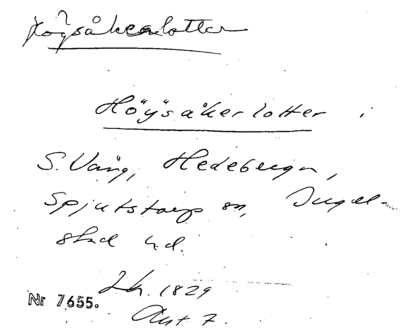 Hoÿsåkerlotter
Höÿsåkerlotter i
S. Vång, Hedeberga,
Spjutstorp sn, Ingel-
stad hd.
Lk. 1829
Nr 7655. Akt 7.